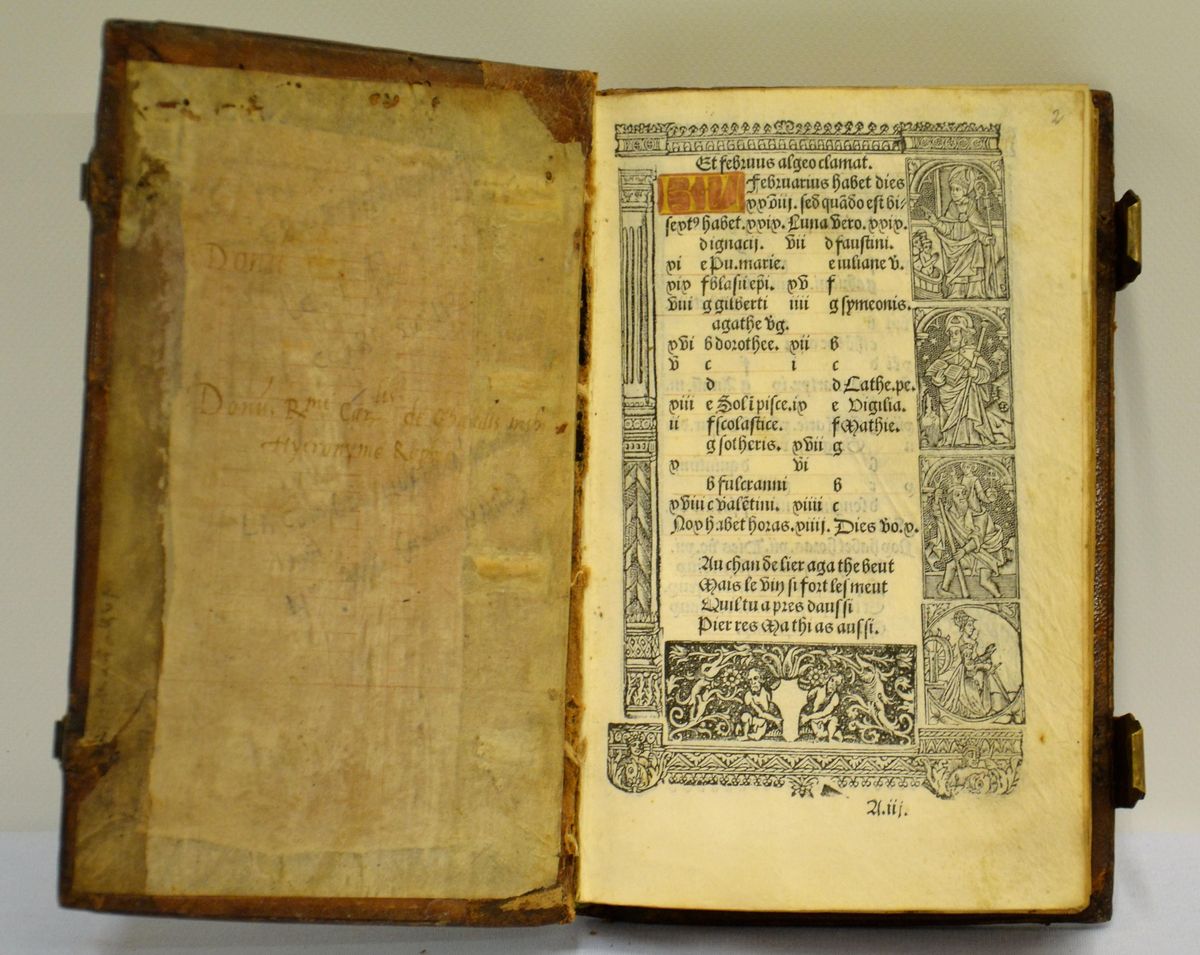 Donu
Donu. Rmi Car lis de
Hyeronyme
2
Et februus algeo clamat.
KL Februarius habet dies
xxviij. sed quādo est bi-
sext⁹ habet. xxix. Luna vero. xxix.
d ignacij. vii d faustini.
xi e Pu. marie. e iuliane v.
xix f blasii ep̄i. xv f
viii g gilberti iiii g symeonis.
agathe v̄g.
xvi b dorothee. xii b
v c i c
d d Cathe. pe.
xiii e Sol ī pisce. ix e Vigilia.
ii f scolastice. f Mathie.
g sotheris. xvii g
x vi
b fulcranni b
xviii c valētini. xiiii c
Nox habet horas. xiiij. Dies vo. x.
Au chan de lier aga the beut
Mais le vin si fort les meut
Quil tu a pres daussi
Pier res Ma thi as aussi.
A.iij.